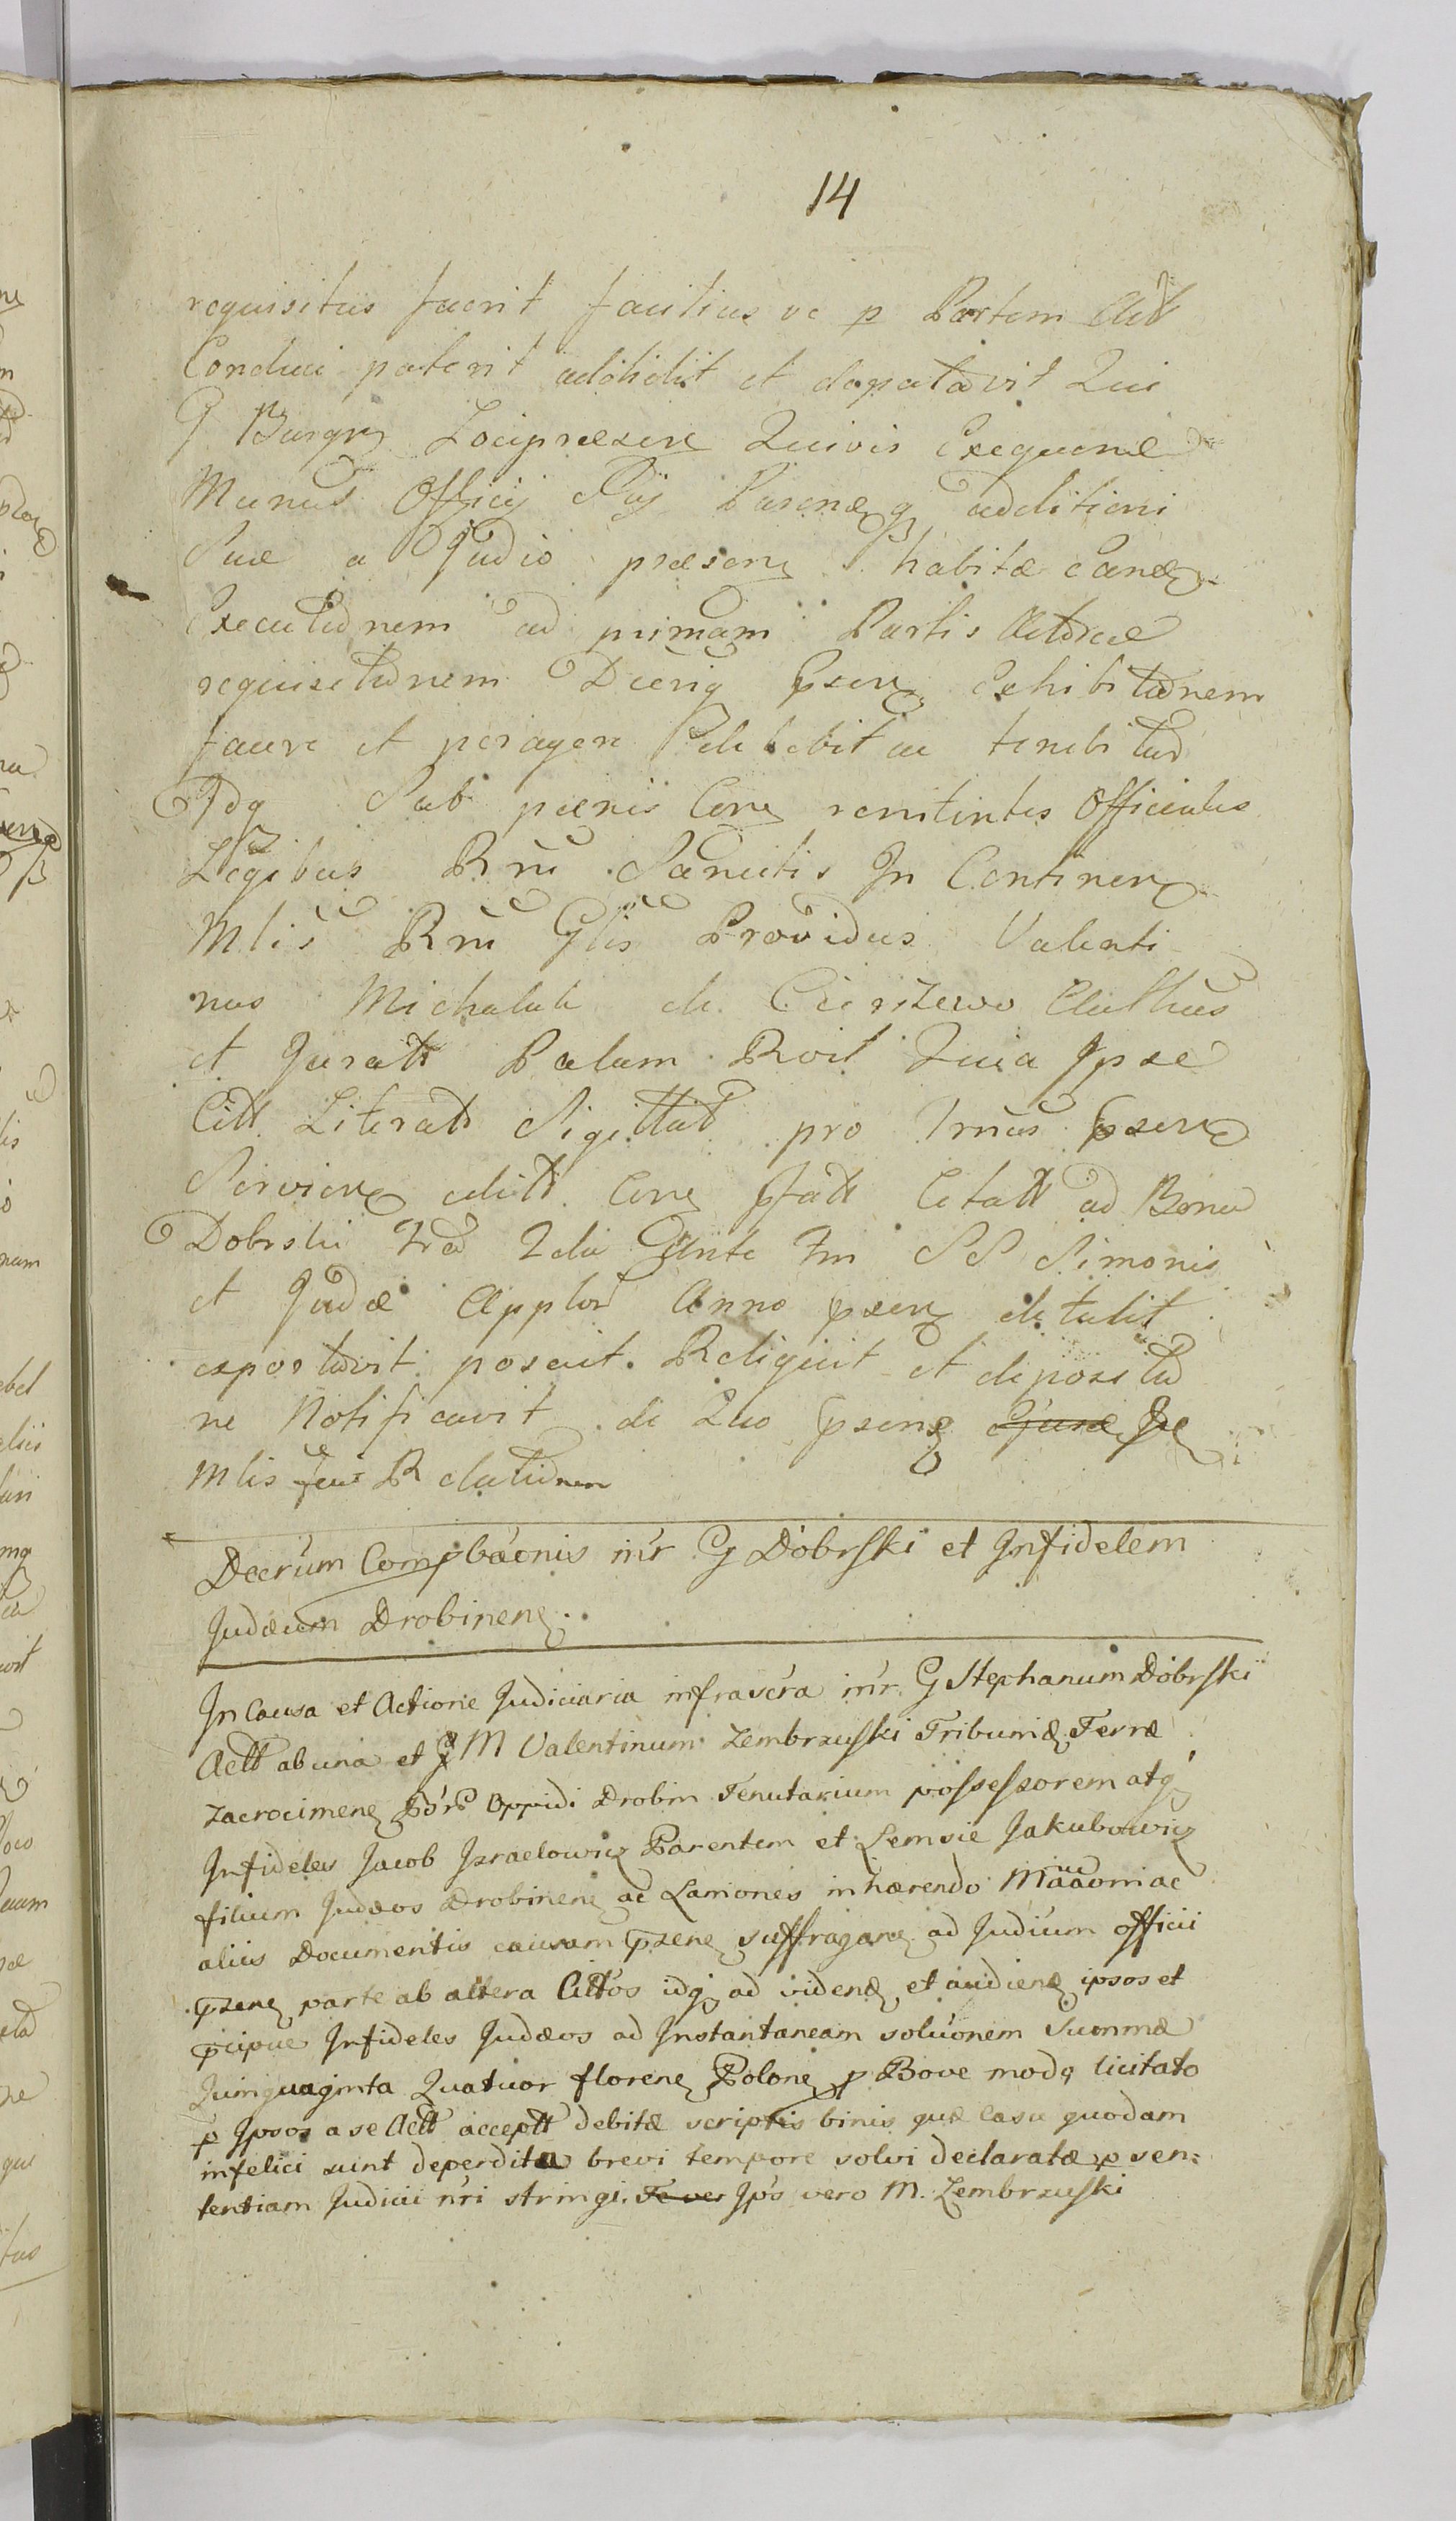 14
requisitus fuerit facilius ve p Partem Act
Conduci poterit addidit et deputavit Qui
G Burgr Locipraesen Quivis Exequens
Munus Officij Sui additioni
Suae a Judio praesen habitae
Executionem ad primam Partis Actoreae
requisitionem psen exhibitionem
facere et peragere debebit ac tenebitur
Idq Sub poenis Con renitentes Officiales
Legibus Rni Sancitis In Continen
Mlis Rni Glis Providus Valenti
nus Michalak de
et Juratt Palam Quia Ipse
Citt Literatt Sigillatt pro Trnis psen
Servien editt Con Citatt ad Bona
Dobrski Fria 2da Ante Fm SS Simonis
et Judae Applor Anno psen detulit
exportavit posuit Reliquit et deposita
ne Notificavit de Quo psens
Mlis fecit Relationem
Decrum Compbãonis inr G Dobrski et Infidelem
Judaeum Drobinen
In Causa et Actione Judiciaria infrascra inr G Stephanum Dobrski
Actt ab una et M Valentinum Zembrzuski Tribunid Terrae
Zacrocimen Oppidi Drobin Tenutarium possessorem atq
Infideles Jacob Izraelowicz Parentem et Jakubowicz
filium Judaeos Drobinen ac Laniones inhaerendo ac
aliis Documentis causam pzen suffragan ad Judium officii
pzen parte ab altera Cittos idq ad viden et audien ipsos et
pcipue Infideles Judaeos ad Instantaneam soluonem Summae
Quinquaginta Quatuor floren Polon p Bove modo licitato
p Ipsos a se Actt acceptt debitae scriptis binis quae casu quodam
infelici sunt deperdita brevi tempore solvi declaratae p sen=
tentiam Judicii nri stringi. Ips vero M. Zembrzuski